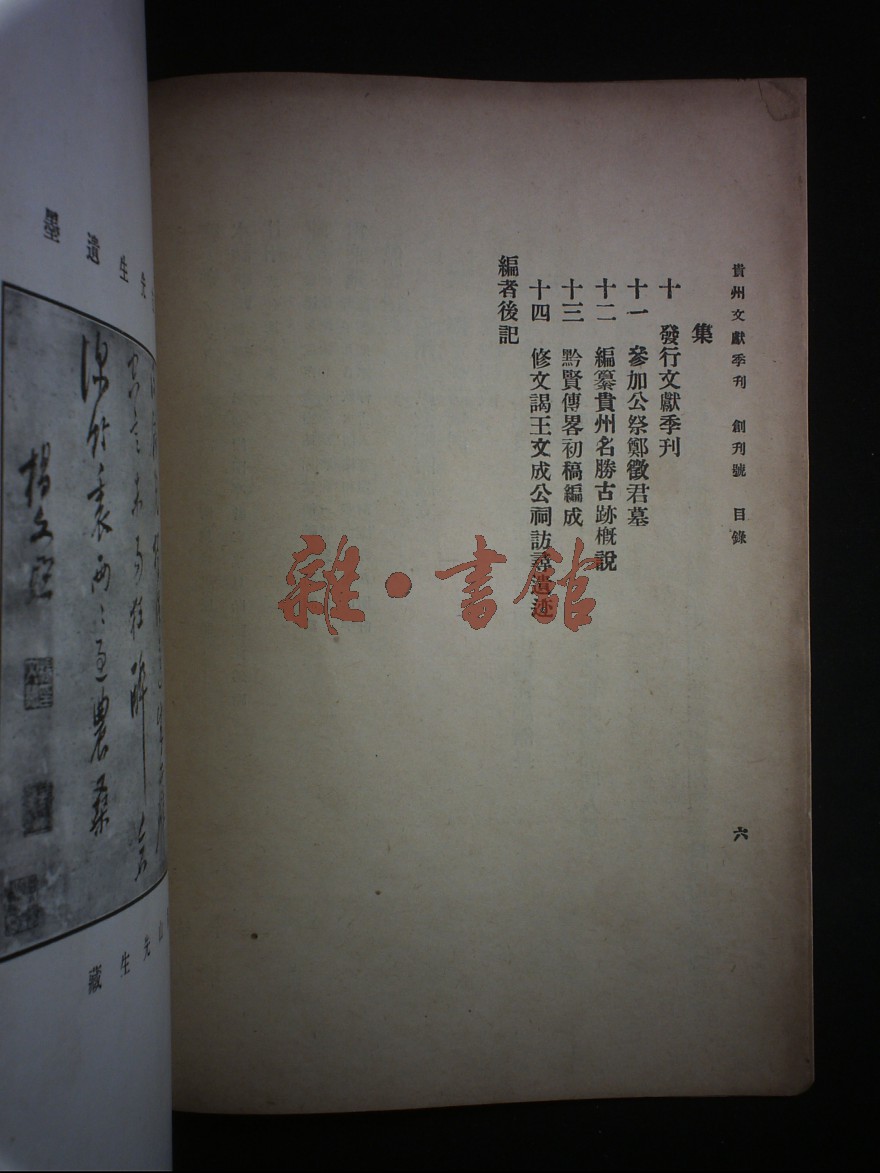 貴州文獻季刊 創刊號 目錄
六
集
十 發行文獻季刊
十一 參加公祭鄭徵君墓
十二 編纂貴州名勝古跡概說
十三 黔賢傳畧初稿編成
十四 修文謁王文成公祠訪尋遺迹
編者後記
雜·書館
先生遺墨
楊文驄
山先生藏